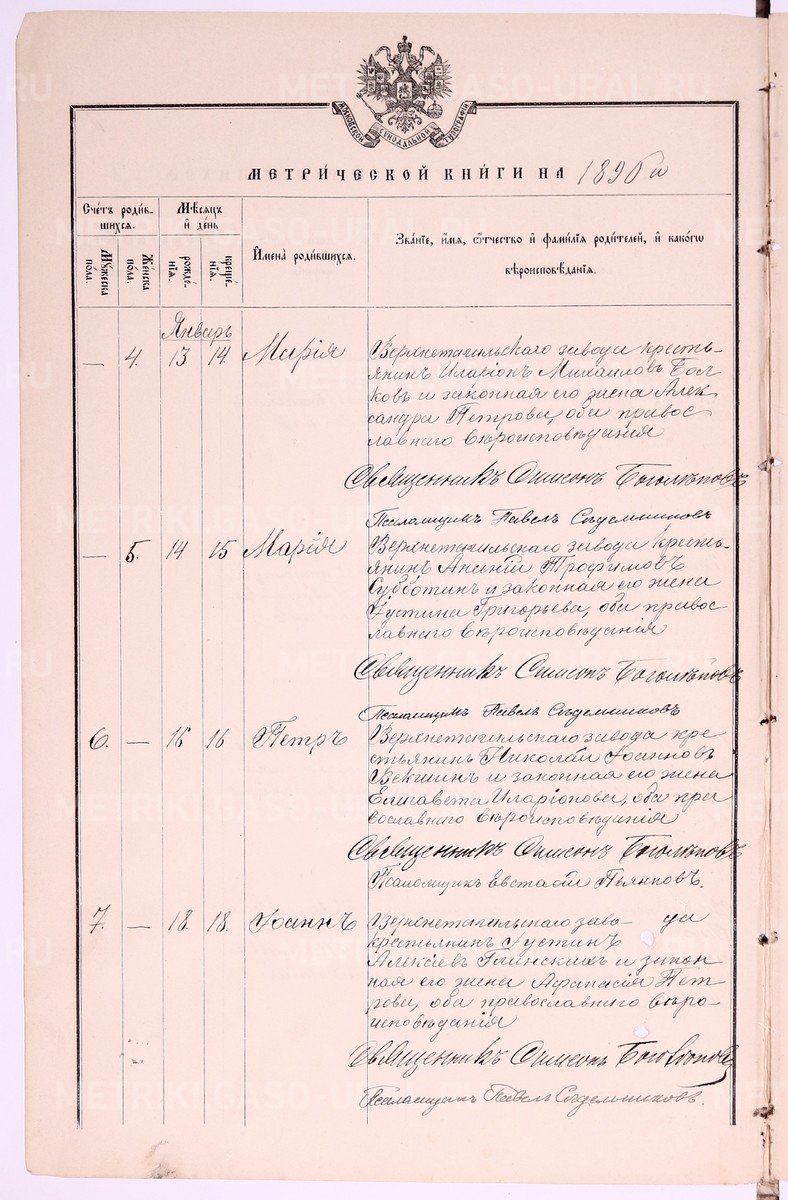 МОСКОВСКОЙ СѴНОДАЛЬНОЙ ТИПОГРАФІИ
МЕТРИ́ЧЕСКОЙ КНИ́ГИ НА 1896 г̃
Сче́тъ роди́в-
шихся.
Му́жеска по́ла.
Же́нска по́ла.
Мѣ́сяцъ
и҆ де́нь
рожде́-
нїѧ.
креще́-
нїѧ.
И҆мена̀ роди́вшихся.
Зва́нїе, и҆́мѧ, ѻ҆́тчество и҆ фами́лїѧ роди́телей, и҆ како́гѡ
вѣроисповѣ́данїѧ.
Январь
— 4. 13 14. Марія
Верхнетагильскаго завода кресть-
янинъ Иларіонъ Михаиловъ
и законная его жена Алек
сандра Петрова, оба правос
лавнаго вѣроисповѣданія
Священникъ Симеонъ Боголѣповъ
Псаломщикъ Павелъ Съдельниковъ
— 5. 14 15 Марія
Верхнетагильскаго завода кресть-
янинъ Ананій Трофимовъ
Субботинъ и законная его жена
Іустина Григорьева, оба правос
лавнаго вѣроисповѣданія
Священникъ Симеонъ Боголѣповъ
Псаломщикъ Павелъ Съдельниковъ
6. — 16 16 Петръ
Верхнетагильскаго завода кре
стьянинъ Николай Іоанновъ
Векшинъ и законная его жена
Елисавета Иларіонова, оба пра
вославнаго вѣроисповѣданія
Священникъ Симеонъ Боголѣповъ
Псаломщикъ Евстафій Пьянковъ.
7. — 18. 18. Іоаннъ
Верхнетагильскаго заво- да
крестьянинъ Іустинъ
Алексѣевъ Глинскихъ и закон
ная его жена Афанасія Пет
рова, оба православнаго вѣро-
исповѣданія
Священникъ Симеонъ Боголѣповъ
Псаломщикъ Павелъ Съдельниковъ.
METRIKI.GASO-URAL.RU